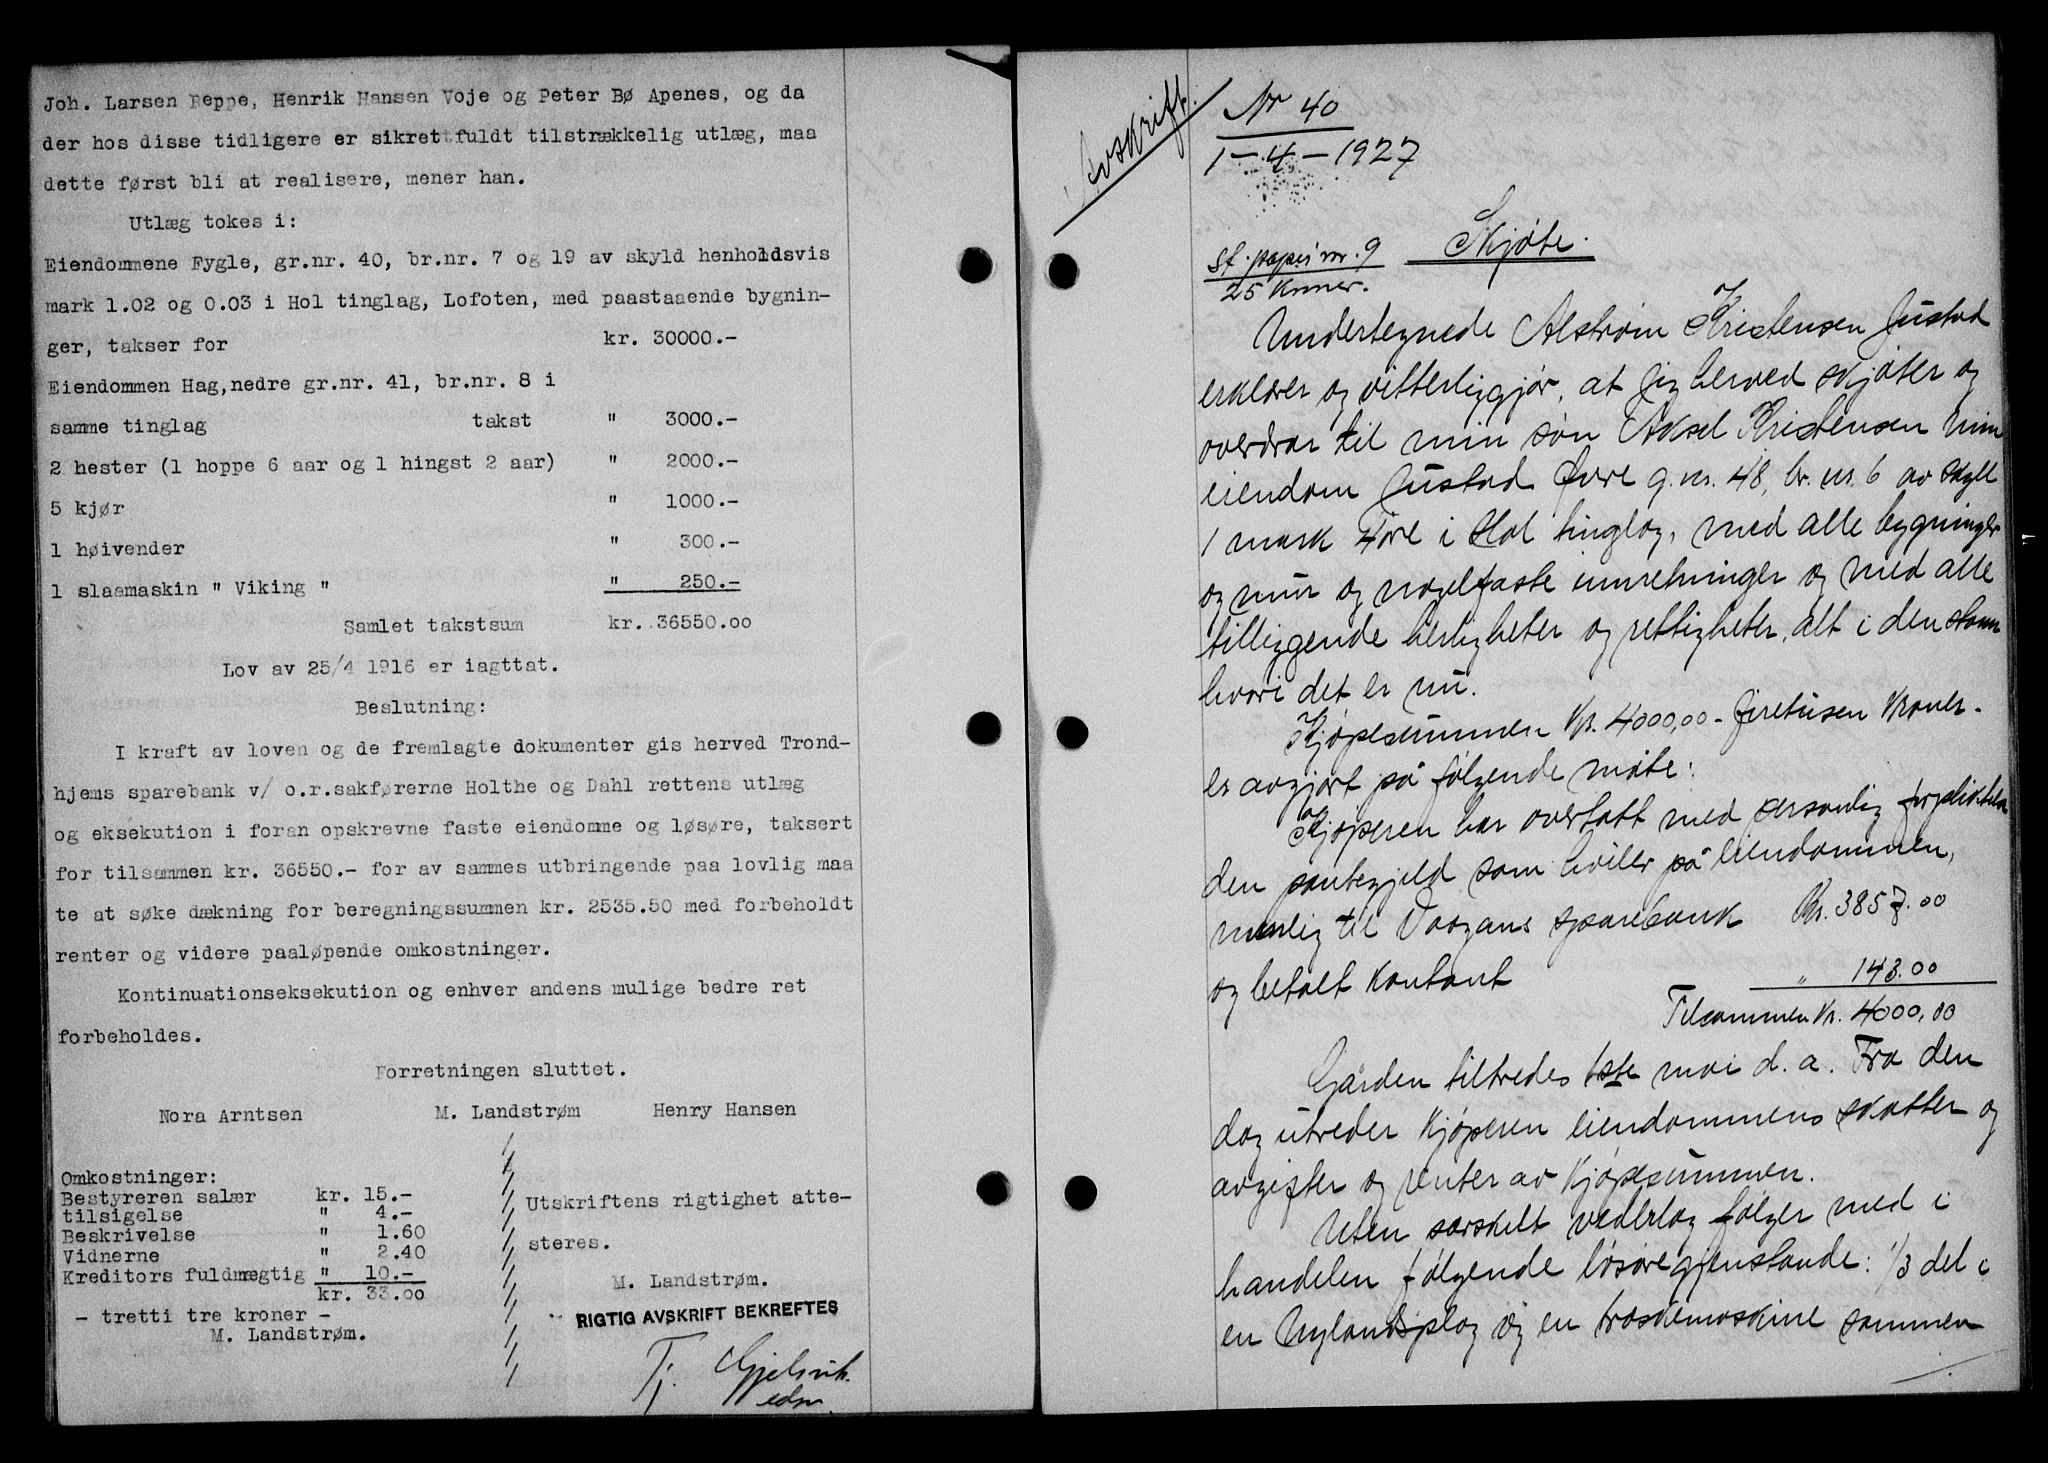 Joh. Larsen Reppe, Henrik Hansen Voje og Peter Bø Apenes, og da
der hos disse tidligere er sikret fuldt tilstrækkelig utlæg, maa
dette først bli at realisere, mener han.
Utlæg tokes i:
Eiendommene Fygle, gr.nr. 40, br.nr. 7 og 19 av skyld henholdsvis
mark 1.02 og 0.03 i Hol tinglag, Lofoten, med paastaaende bygnin-
ger, takser for kr. 30000.-
Eiendommen Hag, nedre gr.nr. 41, br.nr. 8 i
samme tinglag takst " 3000.-
2 hester (1 hoppe 6 aar og 1 hingst 2 aar) " 2000.-
5 kjør " 1000.-
1 høivender " 300.-
1 slaamaskin " Viking " " 250.-
Samlet takstsum kr. 36550.00
Lov av 25/4 1916 er iagttat.
Beslutning:
I kraft av loven og de fremlagte dokumenter gis herved Trond-
hjems sparebank v/ o.r.sakførerne Holthe og Dahl rettens utlæg
og eksekution i foran opskrevne faste eiendomme og løsøre, taksert
for tilsammen kr. 36550.- for av sammes utbringende paa lovlig maa
te at søke dækning for beregningssummen kr. 2535.50 med forbeholdt
renter og videre paaløpende omkostninger.
Kontinuationseksekution og enhver andens mulige bedre ret
forbeholdes.
Forretningen sluttet.
Nora Arntsen M. Landstrøm Henry Hansen
Omkostninger:
Bestyreren salær kr. 15.-
tilsigelse " 4.-
Beskrivelse " 1.60
Vidnerne " 2.40
Kreditors fuldmægtig " 10.-
kr. 33.00
- tretti tre kroner -
M. Landstrøm.
Utskriftens rigtighet atte-
steres.
M. Landstrøm.
RIGTIG AVSKRIFT BEKREFTES
T. Gjelsvik
edsv.
Avskrift.
Nr 40
1-4-1927
Skjøte.
St. papir nr. 9
25 Kroner.
Undertegnede Alstrøm Kristensen Justad
erklærer og vitterliggjør, at jeg herved skjøter og
overdrar til min søn Aksel Kristensen min
eiendom Justad Øvre g. nr. 48, br. nr. 6 av skyld
1 mark 4 øre i Hol tinglag, med alle bygninger
og mur og nagelfaste innretninger og med alle
tilliggende herligheter og rettigheter, alt i den stann
hvori det er nu.
Kjøpesummen Kr. 4000,00 - firetusen Kroner -
er avgjort på følgende måte:
Kjøperen har overtatt med personlig forpliktelse
den pantegjeld som hviler på eiendommen,
nemlig til Vaagans sparebank Kr. 3857.00
og betalt kontant " 143.00
Tilsammen Kr. 4000,00
Gården tiltredes 1ste mai d. a. Fra den
dag utreder Kjøperen eiendommens skatter og
avgifter og renter av Kjøpesummen.
Uten særskilt vederlag følger med i
handelen følgende løsøregjenstande: 1/3 del i
en Uglandsplog og en træskemaskine sammen